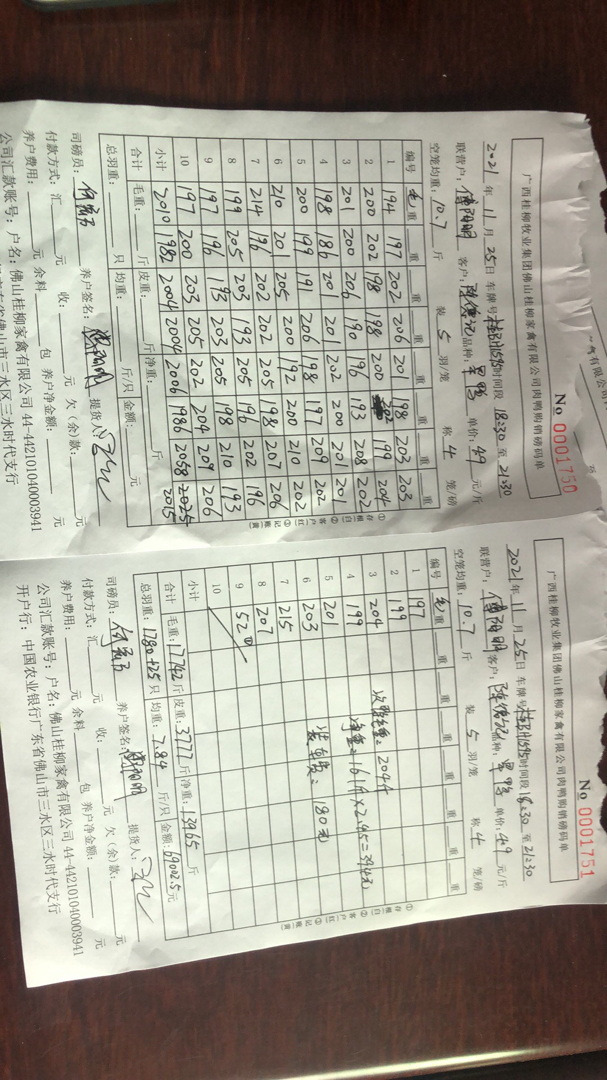 广西桂柳牧业集团佛山桂柳家禽有限公司肉鸭购销磅码单
No 0001750
2021年 11月 25日 车牌号 时间段 18:30 至 21:30
联营户: 客户: 品种: 单价: 4.9 元/斤
空笼均重: 10.7 斤 装 5 羽/笼 称 4 笼/磅
编号 毛重 重 重 重 重 重 重 重
1 194 197 202 206 201 198 203 203
2 200 202 198 198 200 202 199 204
3 201 200 206 190 196 193 208 202
4 198 186 201 201 202 200 201 201
5 200 199 191 206 198 197 209 202
6 210 201 205 200 192 200 210 202
7 214 196 202 202 205 198 207 206
8 199 205 203 193 205 196 202 196
9 197 196 193 203 205 198 210 193
10 197 200 203 205 202 204 209 206
小计 2010 1982 2004 2004 2006 1986 2058 2025 2015
合计 毛重: 斤 皮重: 斤 净重: 斤
总羽重: 只 均重: 斤/只 金额: 元
司磅员: 养户签名: 提货人:
付款方式:汇 元 收: 元 欠(余)款: 元
养户费用: 元 余料 包 养户净金额: 元
公司汇款账号:户名:佛山桂柳家禽有限公司 44-442101040003941
佛山市三水区三水时代支行
①存根白 ②客户红 ③记账黄
广西桂柳牧业集团佛山桂柳家禽有限公司肉鸭购销磅码单
No 0001751
2021年 11月 25日 车牌号 时间段 18:30 至 21:30
联营户: 客户: 品种: 单价: 4.9 元/斤
空笼均重: 10.7 斤 装 5 羽/笼 称 4 笼/磅
编号 毛重 重 重 重 重 重 重 重
1 197
2 199
3 204 毛重: 2044
4 199 净重: 1619×2.45=3944元
5 201 装车费: 180元
6 203
7 215
8 207
9 52
10
小计
合计 毛重: 17742 斤 皮重: 3777 斤 净重: 13965 斤
总羽重: 1780+25 只 均重: 7.84 斤/只 金额: 69002.5 元
司磅员: 养户签名: 提货人:
付款方式:汇 元 收: 元 欠(余)款: 元
养户费用: 元 余料 包 养户净金额: 元
公司汇款账号:户名:佛山桂柳家禽有限公司 44-442101040003941
开户行:中国农业银行广东省佛山市三水区三水时代支行
①存根白 ②客户红 ③记账黄